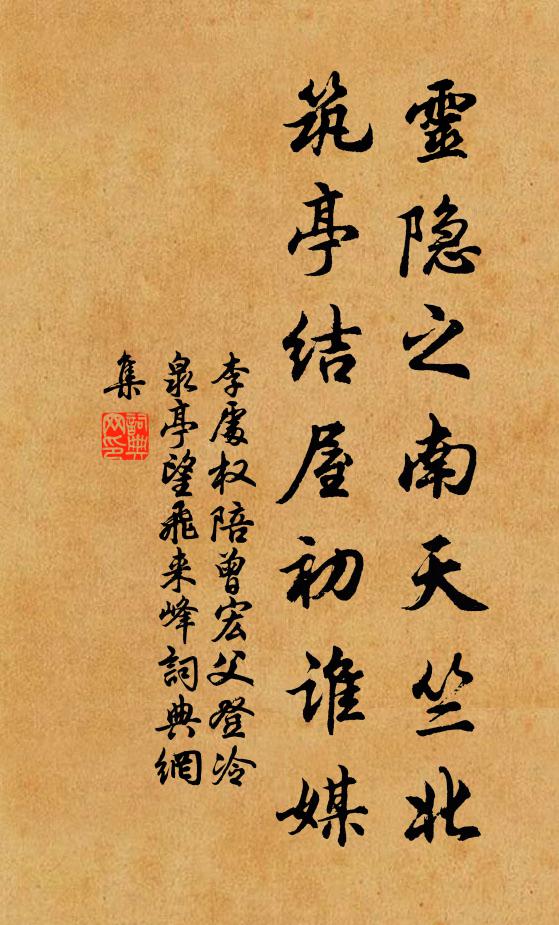 靈隐之南天竺北
筑亭结屋初谁媒
李處权陪曾宏父登冷
泉亭望飛来峰詞典網
集
詞典
网印